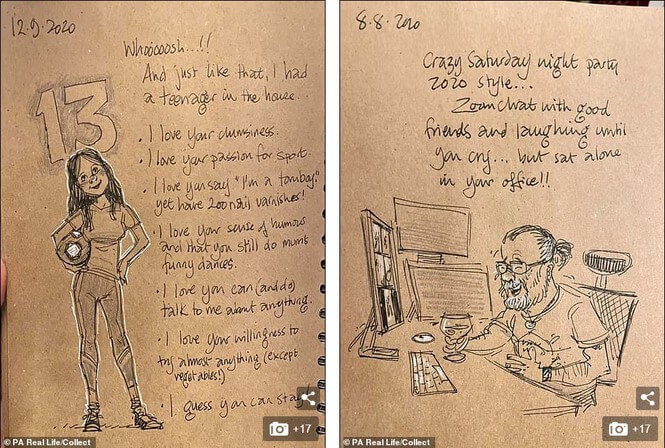 12.9.2020
Whooooosh...!!
And just like that, I had
a teenager in the house.
13
• I love your clumsiness.
• I love your passion for sport.
• I love you say "I'm a tomboy"
yet have 200 nail varnishes!
• I love your sense of humour
and that you still do mum's
funny dances.
• I love you can (and do)
talk to me about anything.
• I love your willingness to
try almost anything (except
vegetables!)
• I guess you can stay
+17
© PA Real Life/Collect
8.8.2020
Crazy Saturday night party
2020 style...
Zoom chat with good
friends and laughing until
you cry... but sat alone
in your office!!
+17
© PA Real Life/Collect